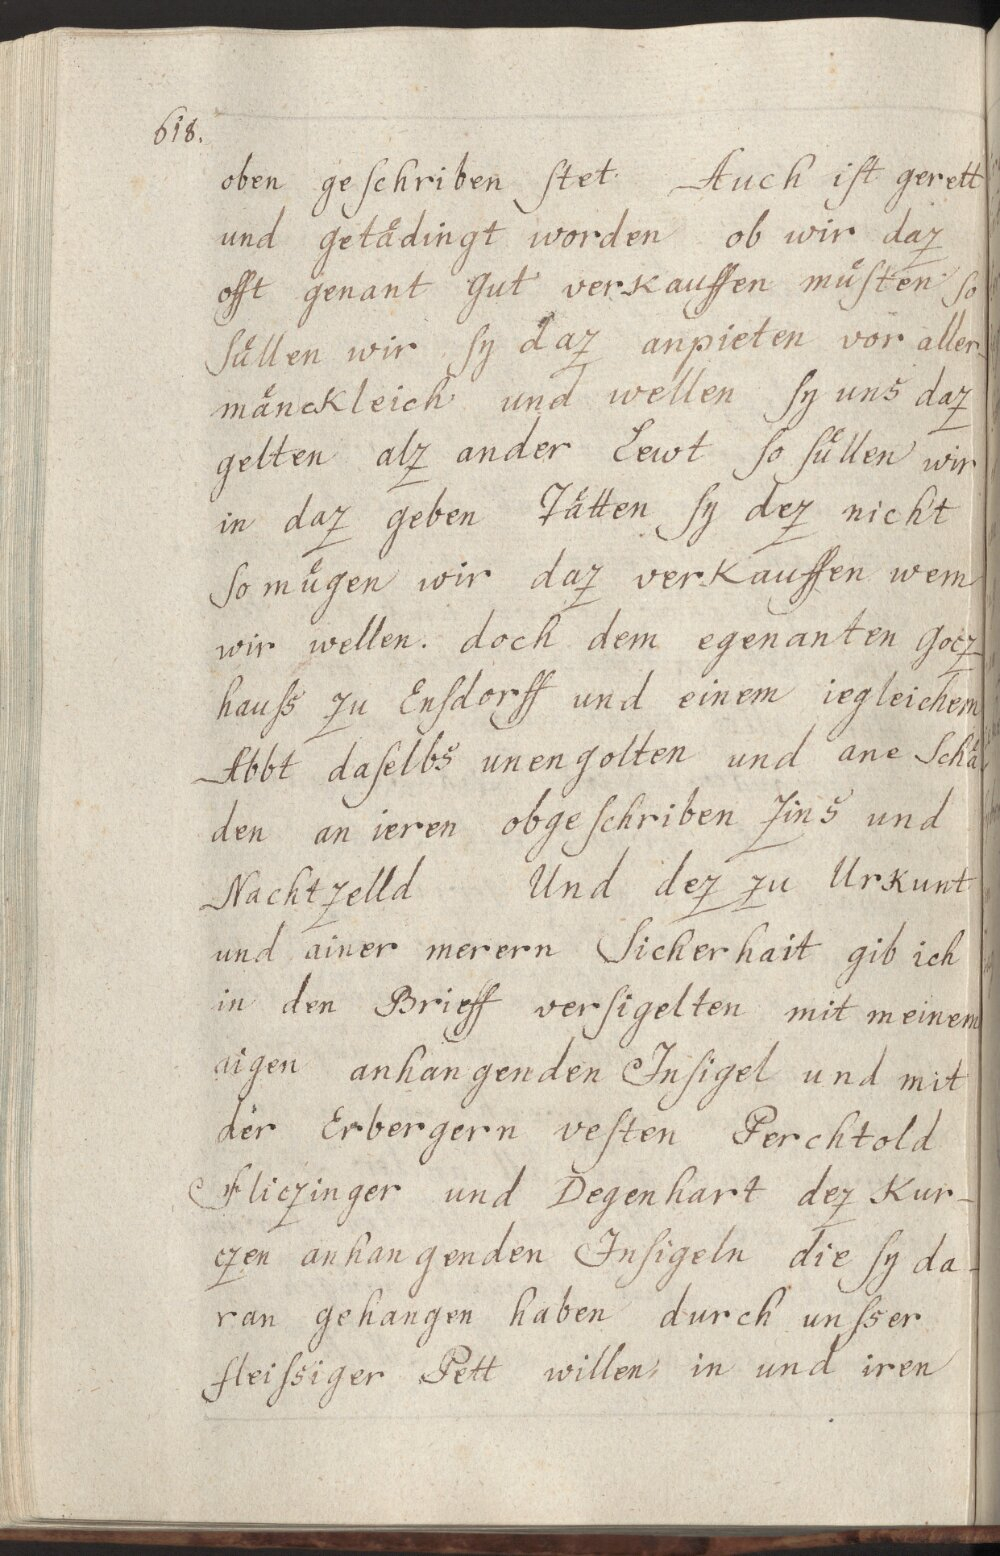 618.
oben geſchriben ſtet. Auch iſt gerett
und getaͤdingt worden ob wir daz
offt genant Gut verkauffen muͤſten ſo
ſuͤllen wir ſy daz anpieten vor aller-
maͤnckleich und wellen ſy uns daz
gelten alz ander Lewt ſo ſuͤllen wir
in daz geben Taͤtten ſy dez nicht
ſo muͤgen wir daz verkauffen wem
wir wellen. doch dem egenanten Gocz-
hauſs zu Enſdorff und einem iegleichem
Abbt daſelbs unengolten und ane Schaͤ
den an ieren obgeſchriben Zins und
Nachtzelld Und dez zu Urkunt
und ainer merern Sicherhait gib ich
in den Brieff verſigelten mit meinem
aigen anhangenden Inſigel und mit
der Erbergern veſten Perchtold
Fliczinger und Degenhart dez Kur-
czen anhangenden Inſigeln die ſy da-
ran gehangen haben durch unſser
fleiſsiger Pett willen, in und iren